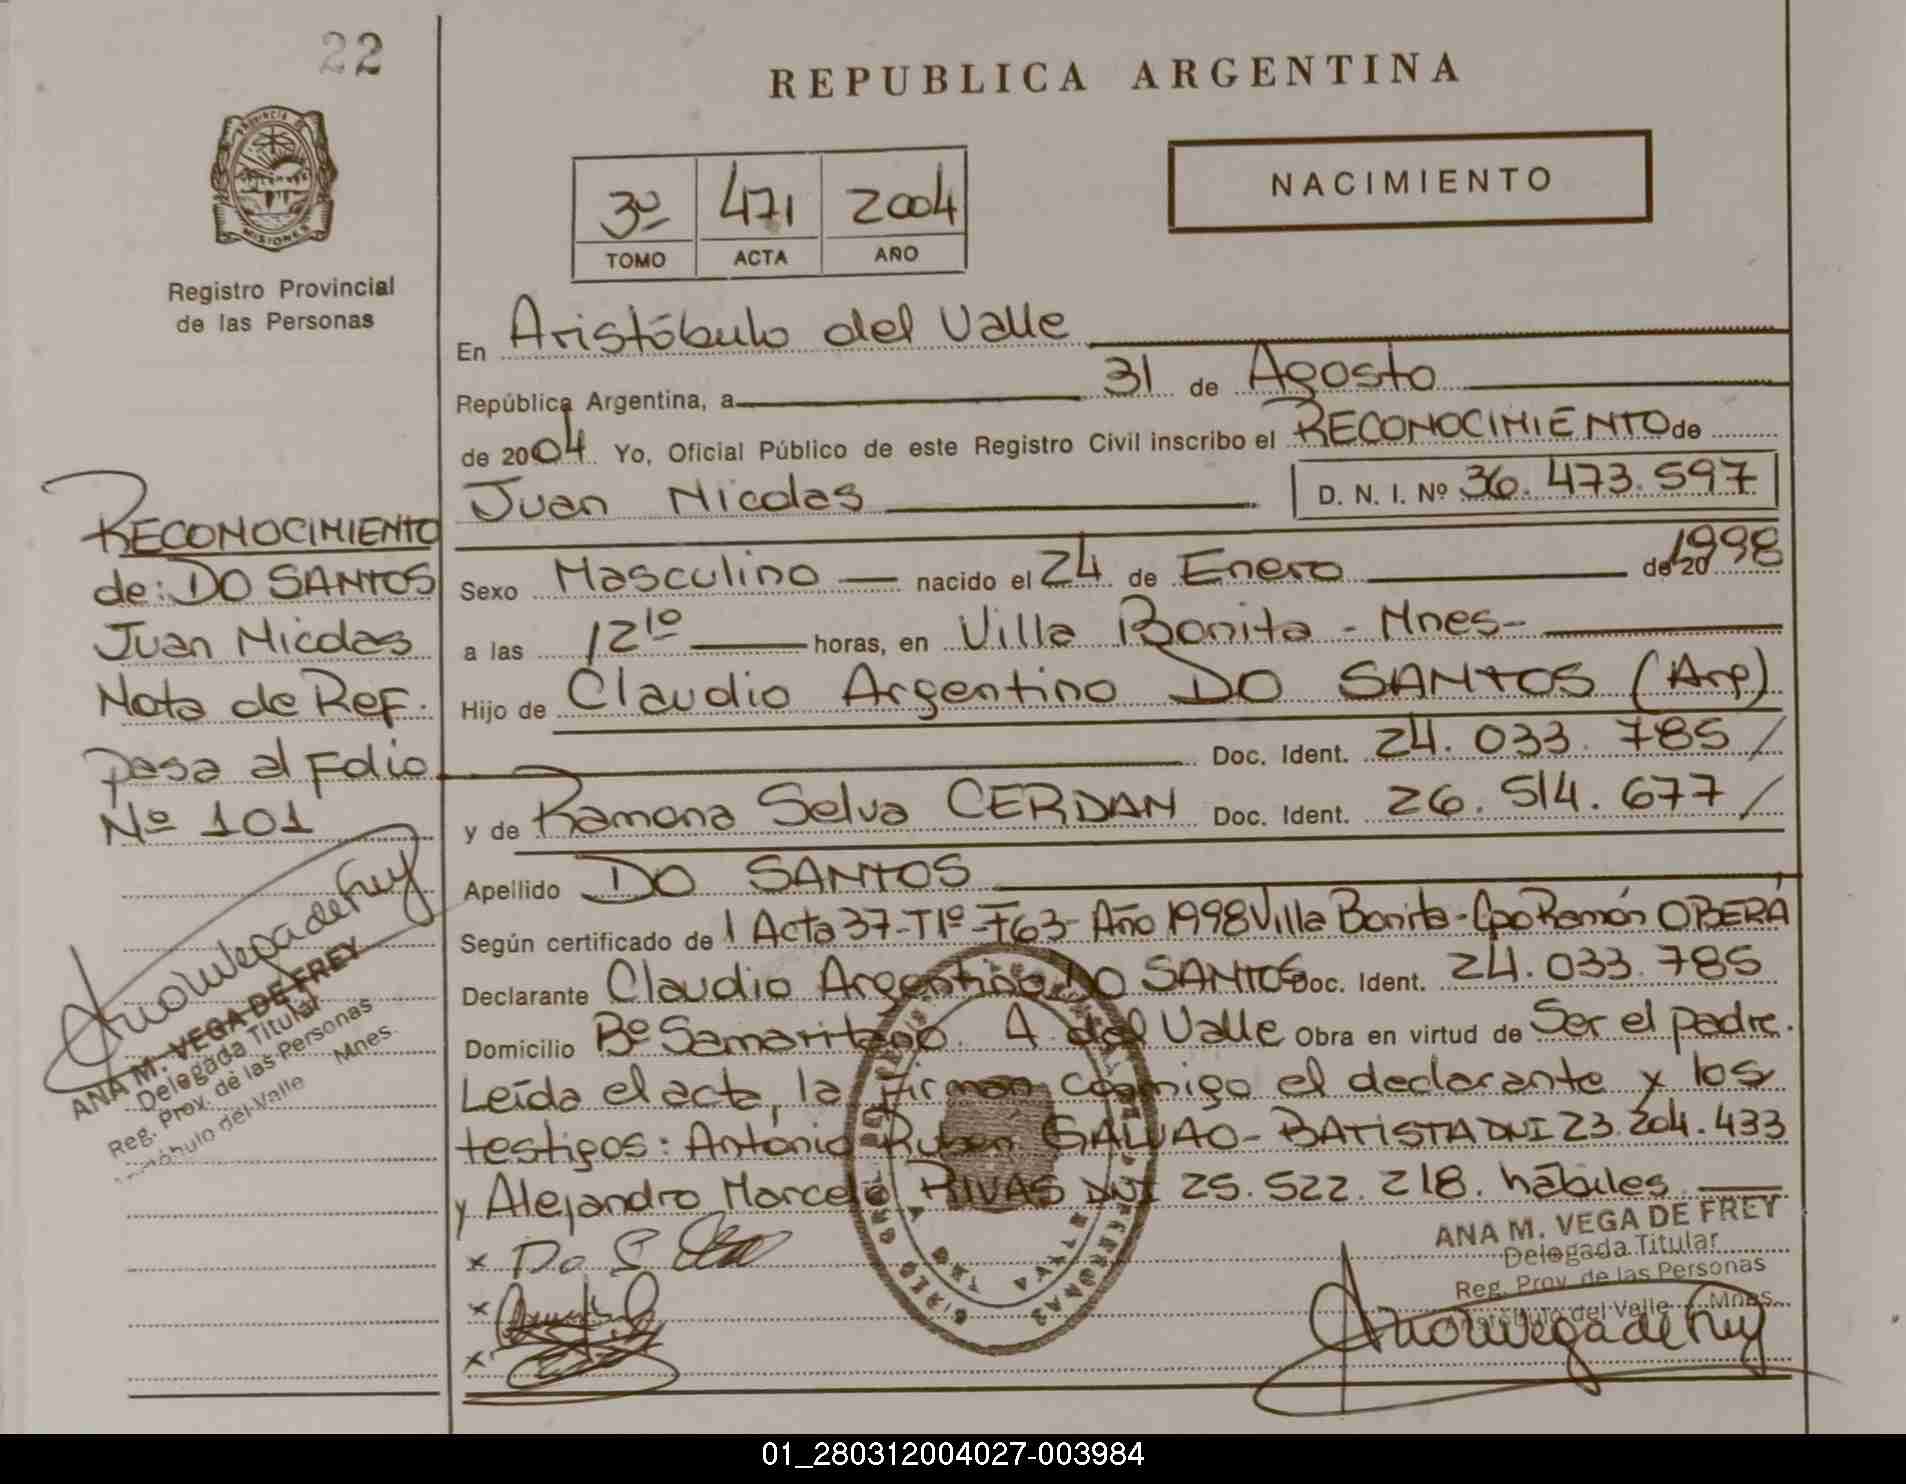 22
REPUBLICA ARGENTINA
PROVINCIA DE
MISIONES
Registro Provincial
de las Personas
3º 471 2004
TOMO ACTA AÑO
NACIMIENTO
En Aristóbulo del Valle
República Argentina, a 31 de Agosto
de 2004 Yo, Oficial Público de este Registro Civil inscribo el RECONOCIMIENTO de
Juan Nicolas D. N. I. Nº 36.473.597
Sexo Masculino nacido el 24 de Enero de 20 1998
a las 12¹º horas, en Villa Bonita - Mnes-
Hijo de Claudio Argentino DO SANTOS (Arg)
Doc. Ident. 24.033.785/
y de Ramona Selva CERDAN Doc. Ident. 26.514.677/
Apellido DO SANTOS
Según certificado de 1 Acta 37-T1º-F63-Año 1998 Villa Bonita-Cpo Ramón OBERÁ
Declarante Claudio Argentino DO SANTOS Doc. Ident. 24.033.785
Domicilio Bº Samaritano. A. del Valle Obra en virtud de Ser el padre.
Leída el acta, la firman conmigo el declarante y los
testigos: Antonio Ruben GALVAO-BATISTA DNI 23.204.433
y Alejandro Marcelo RIVAS DNI 25.522.218. hábiles
x Do S
x
x
ANA M. VEGA DE FREY
Delegada Titular
Reg. Prov. de las Personas
Aristóbulo del Valle Mnes.
RECONOCIMIENTO
de: DO SANTOS
Juan Nicolas
Nota de Ref.
Pasa al Folio
Nº 101
ANA M. VEGA DE FREY
Delegada Titular
Reg. Prov. de las Personas
Aristóbulo del Valle Mnes.
01_280312004027-003984